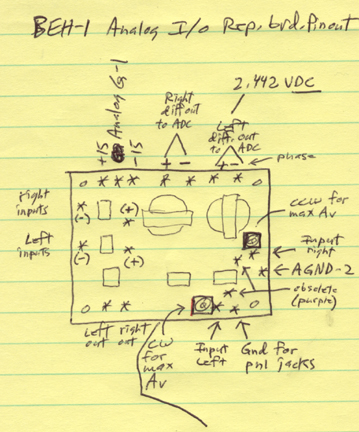 BEH-1 Analog I/O Rep. brd. Pinout
2.442 VDC
+15 Analog G-1 -15
Right diff. out to ADC
Left diff. out to ADC
+ - + -
phase
right inputs
(-) (+)
ccw for max Av
Left inputs
(-) (+)
Input right
AGND-2
obsolete (purple)
Left out right out
cw for max Av
Input Left
Gnd for pnl jacks